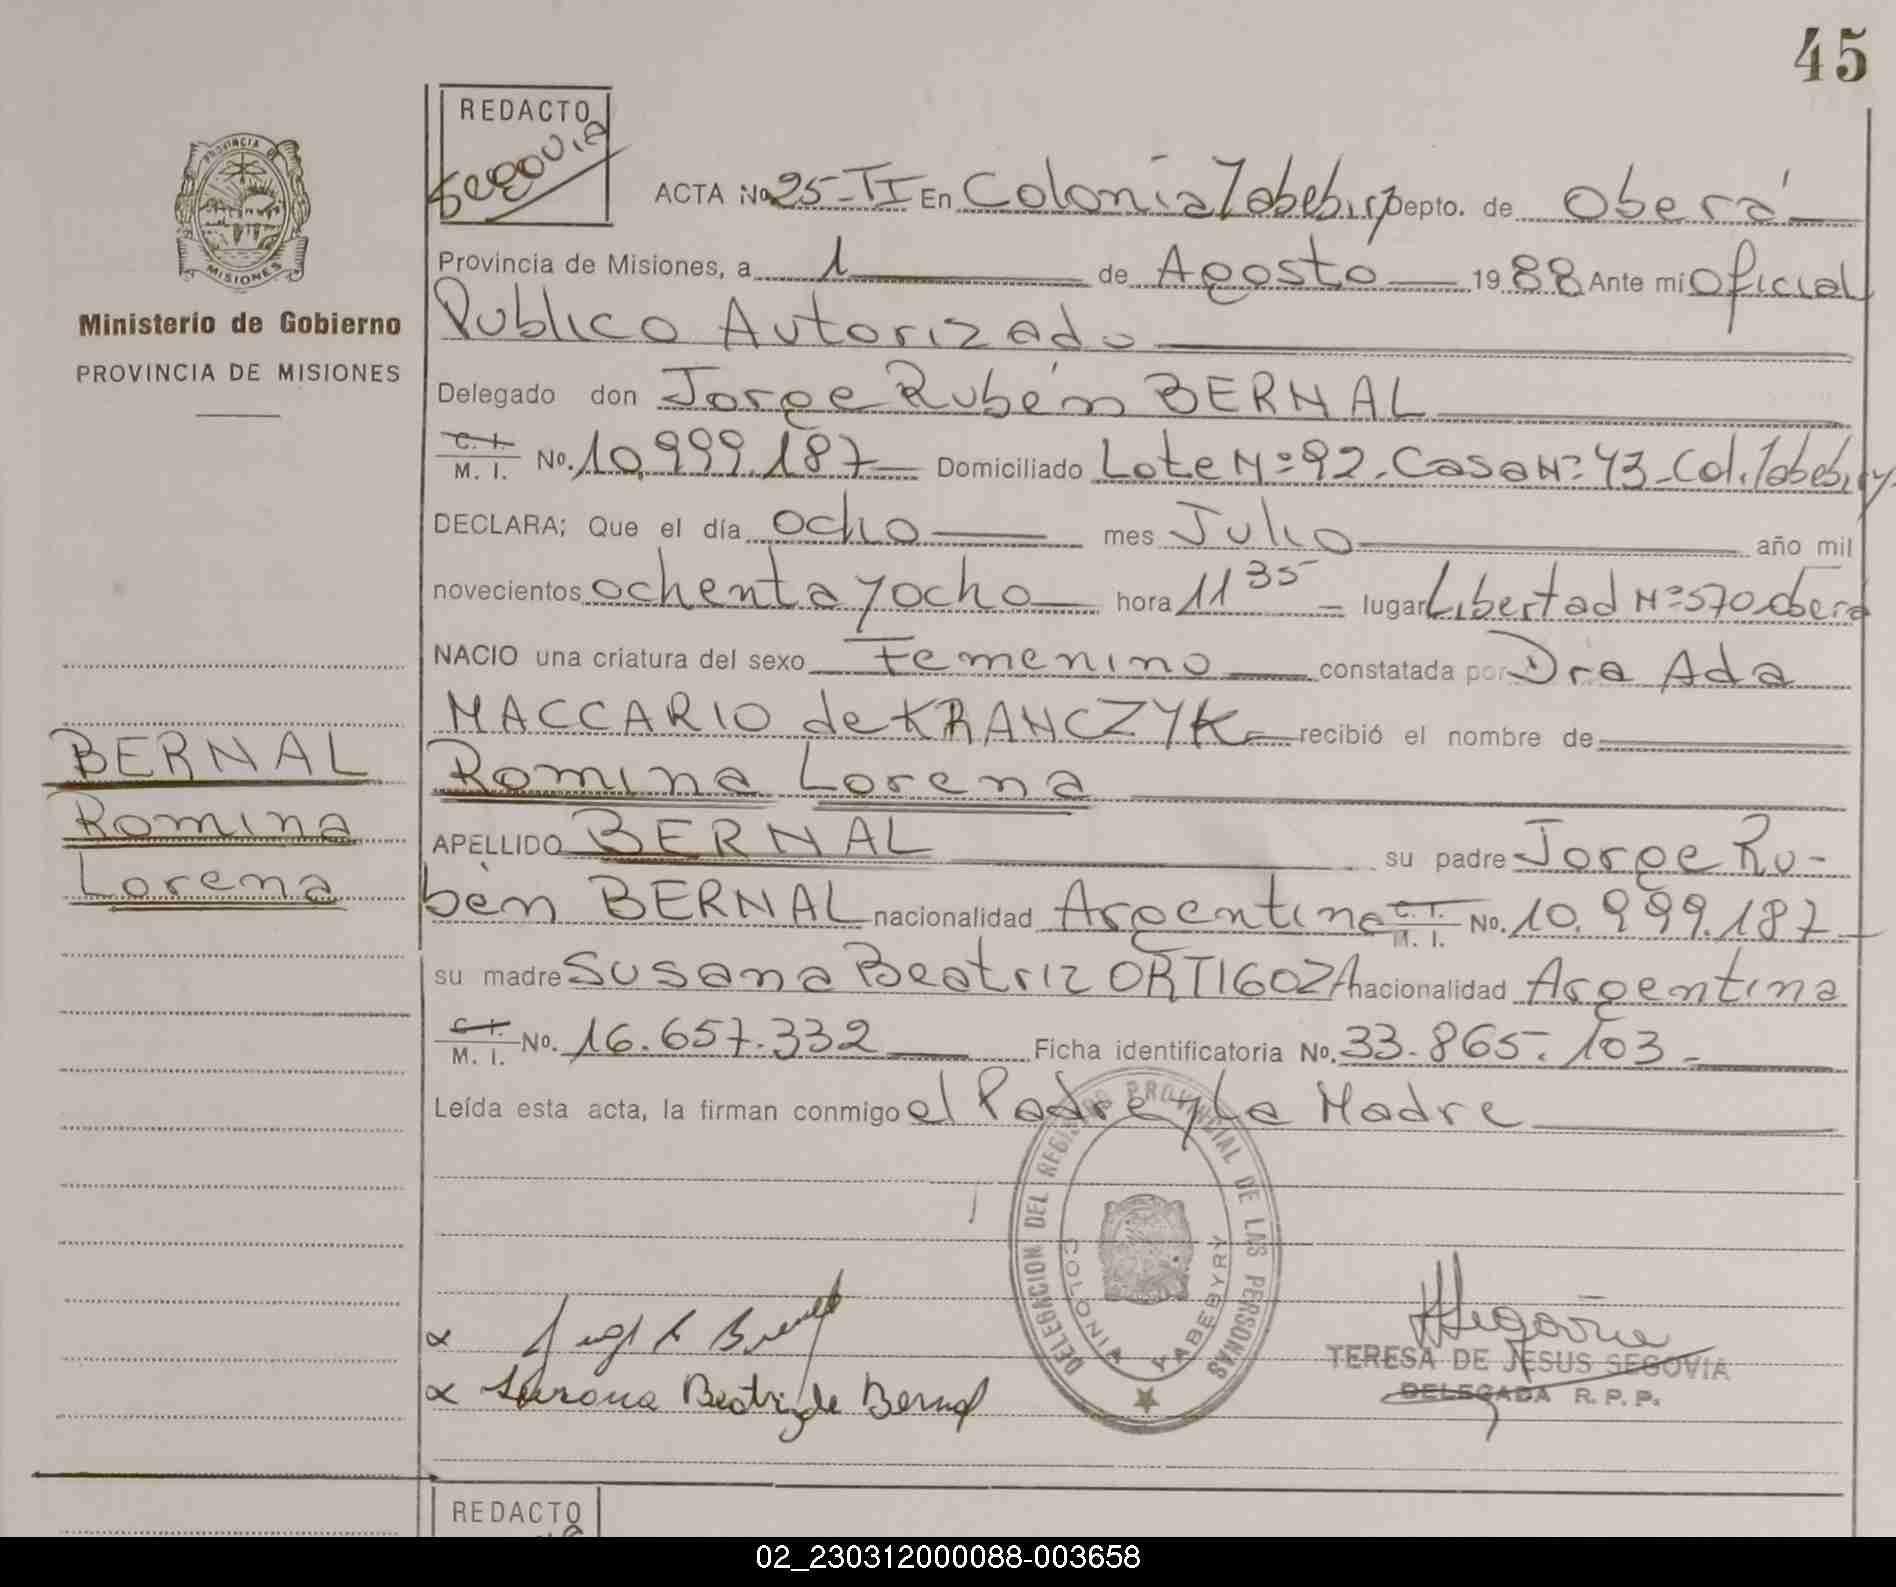 45
REDACTO
SEGOVIA
PROVINCIA DE
MISIONES
Ministerio de Gobierno
PROVINCIA DE MISIONES
ACTA No 25-TI En Colonia Yabebiry Depto. de Oberá
Provincia de Misiones, a 1 de Agosto 1988 Ante mi Oficial
Publico Autorizado
Delegado don Jorge Rubén BERNAL
C. I. M. I. No. 10.999.187 Domiciliado Lote Nº 92. Casa Nº 43-Col. Yabebiry
DECLARA; Que el día ocho mes Julio año mil
novecientos ochenta y ocho hora 11 35 lugar Libertad Nº 570 Oberá
NACIO una criatura del sexo Femenino constatada por Dra Ada
MACCARIO de KRANCZYK recibió el nombre de
Romina Lorena
APELLIDO BERNAL su padre Jorge Ru-
bén BERNAL nacionalidad Argentina C. I. M. I. No. 10.999.187
su madre Susana Beatriz ORTIGOZA nacionalidad Argentina
C. I. M. I. No. 16.657.332 Ficha identificatoria No. 33.865.103
Leída esta acta, la firman conmigo el Padre y La Madre
BERNAL
Romina
Lorena
DELEGACION DEL REGISTRO PROVINCIAL DE LAS PERSONAS
COLONIA YABEBYRY
Bernal
Susana Beatriz de Bernal
Segovia
TERESA DE JESUS SEGOVIA
DELEGADA R. P. P.
REDACTO
02_230312000088-003658